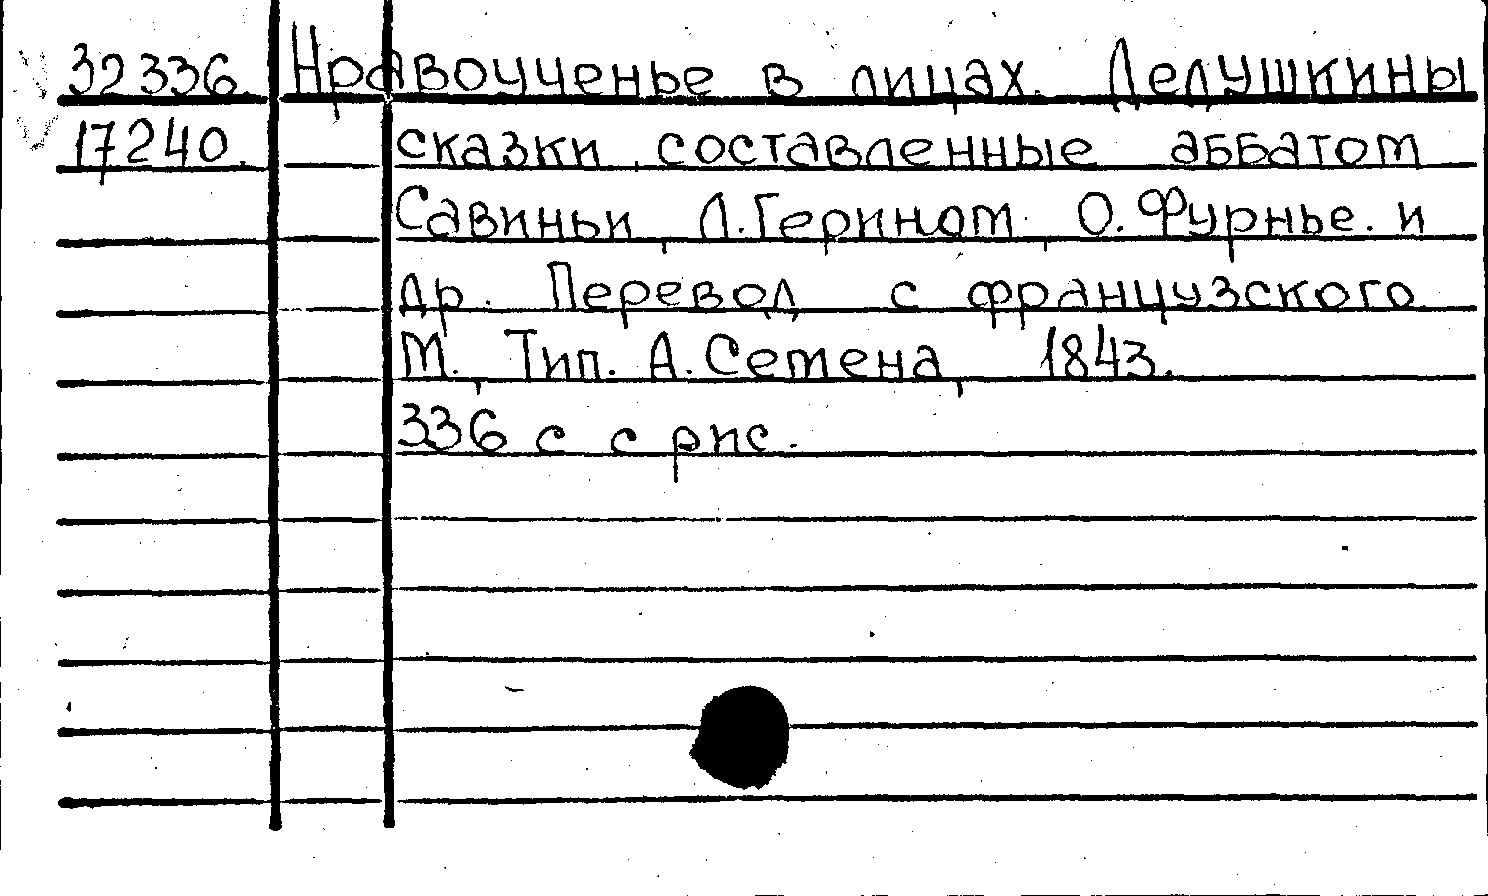 32336. Нравоученье в лицах. Дедушкины
17240. сказки, составленные аббатом
Савиньи, Л. Герином, О. Фурнье. и
др. Перевод с французского
М., Тип. А. Семена, 1843.
336 с с рис.